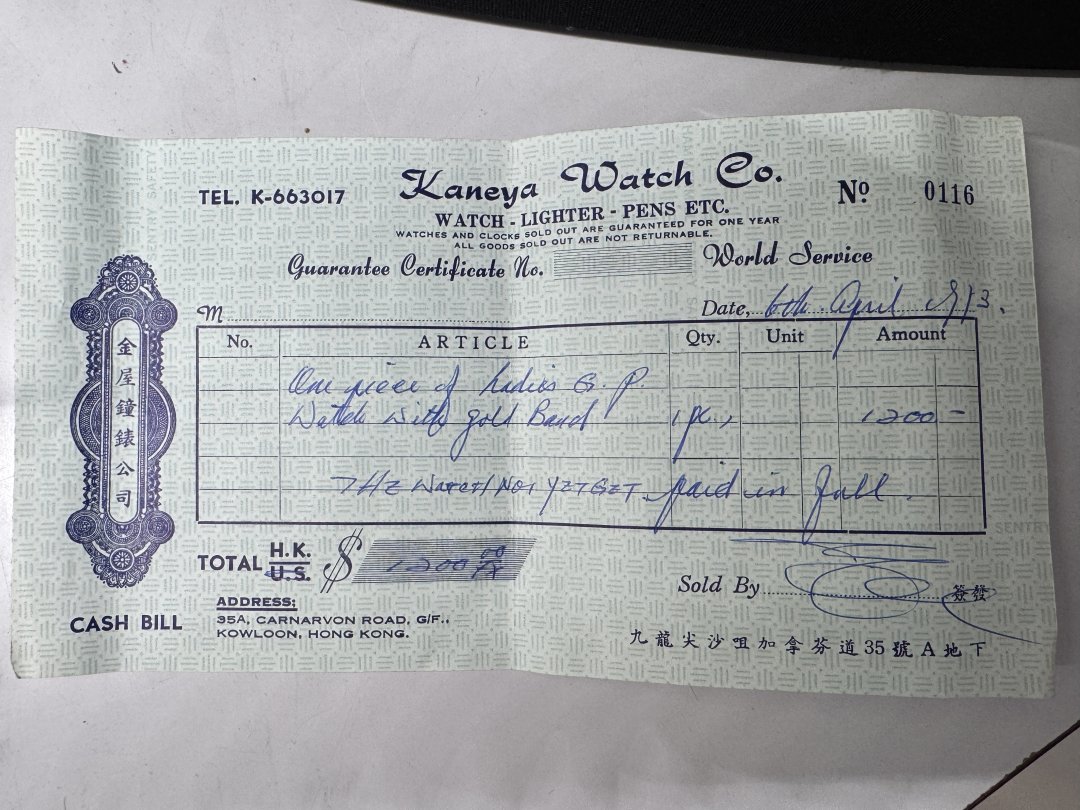 TEL. K-663017
Kaneya Watch Co.
Nº 0116
WATCH - LIGHTER - PENS ETC.
WATCHES AND CLOCKS SOLD OUT ARE GUARANTEED FOR ONE YEAR
ALL GOODS SOLD OUT ARE NOT RETURNABLE.
Guarantee Certificate No. World Service
M Date, 6th April
金屋鐘錶公司
No. ARTICLE Qty. Unit Amount
One piece of Ladies G. P.
Watch with gold Band 1 pc, 1200 -
THE WATCH NOT YET GET. paid in full.
SENTRY
TOTAL H.K. U.S. $ 1200
Sold By 簽發
ADDRESS:
35A, CARNARVON ROAD, G/F.,
KOWLOON, HONG KONG.
CASH BILL
九龍尖沙咀加拿芬道35號A地下